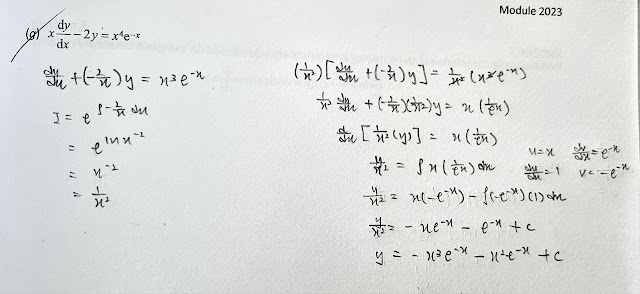 Module 2023
(g) x dy/dx − 2y = x⁴e⁻ˣ
dy/dx + (−2/x) y = x³e⁻ˣ
I = e^∫−2/x dx
= e^ln x⁻²
= x⁻²
= 1/x²
(1/x²)[dy/dx + (−2/x)y] = 1/x² (x³e⁻ˣ)
1/x² dy/dx + (−2/x)(1/x²)y = x(1/eˣ)
d/dx [1/x² (y)] = x(1/eˣ)
y/x² = ∫ x(1/eˣ) dx
u = x dv/dx = e⁻ˣ
du/dx = 1 v = −e⁻ˣ
y/x² = x(−e⁻ˣ) − ∫(−e⁻ˣ)(1) dx
y/x² = −xe⁻ˣ − e⁻ˣ + c
y = −x³e⁻ˣ − x²e⁻ˣ + c